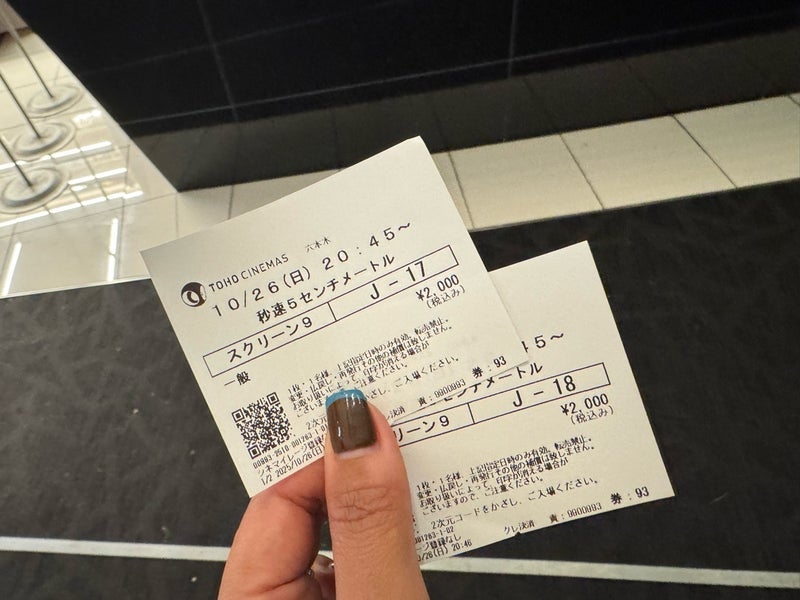 TOHO CINEMAS 六本木
10/26(日) 20:45～
秒速5センチメートル
スクリーン9 J-17
¥2,000
(税込み)
一般
1枚・1名様、上記指定日時のみ有効、転売禁止。
変更・払戻し・再発行その他の補償は致しません。
お取り扱いによって、印字が消える場合が
ございます
ご注意ください。
2次元コ
かざし、ご入場ください。
決済 責:9900093 券:93
00093-2510
シネマイレージ登録
1/2 2025/10/26(日)
5～
センチメートル
リーン9 J-18
¥2,000
(税込み)
1枚・1名様、上記指定日時のみ有効、転売禁止。
変更・払戻し・再発行その他の補償は致しません。
お取り扱いによって、印字が消える場合が
ございますので、ご注意ください。
2次元コードをかざし、ご入場ください。
クレ決済 責:9900093 券:93
001283-1-02
ージ登録なし
(日) 20:46